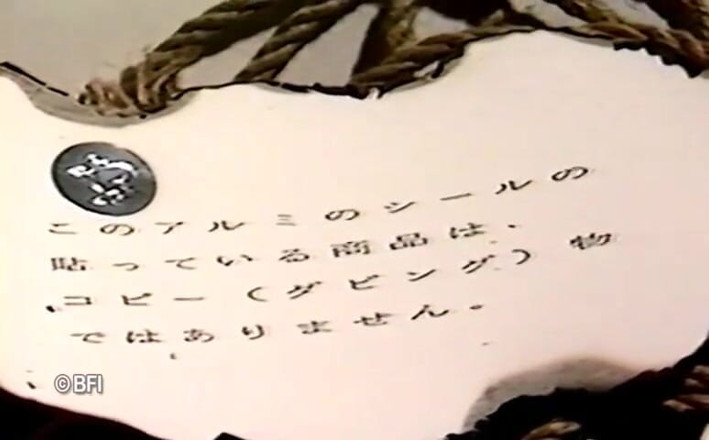 このアルミのシールの
貼っている商品は、
コピー(ダビング)物
ではありません。
©BFI